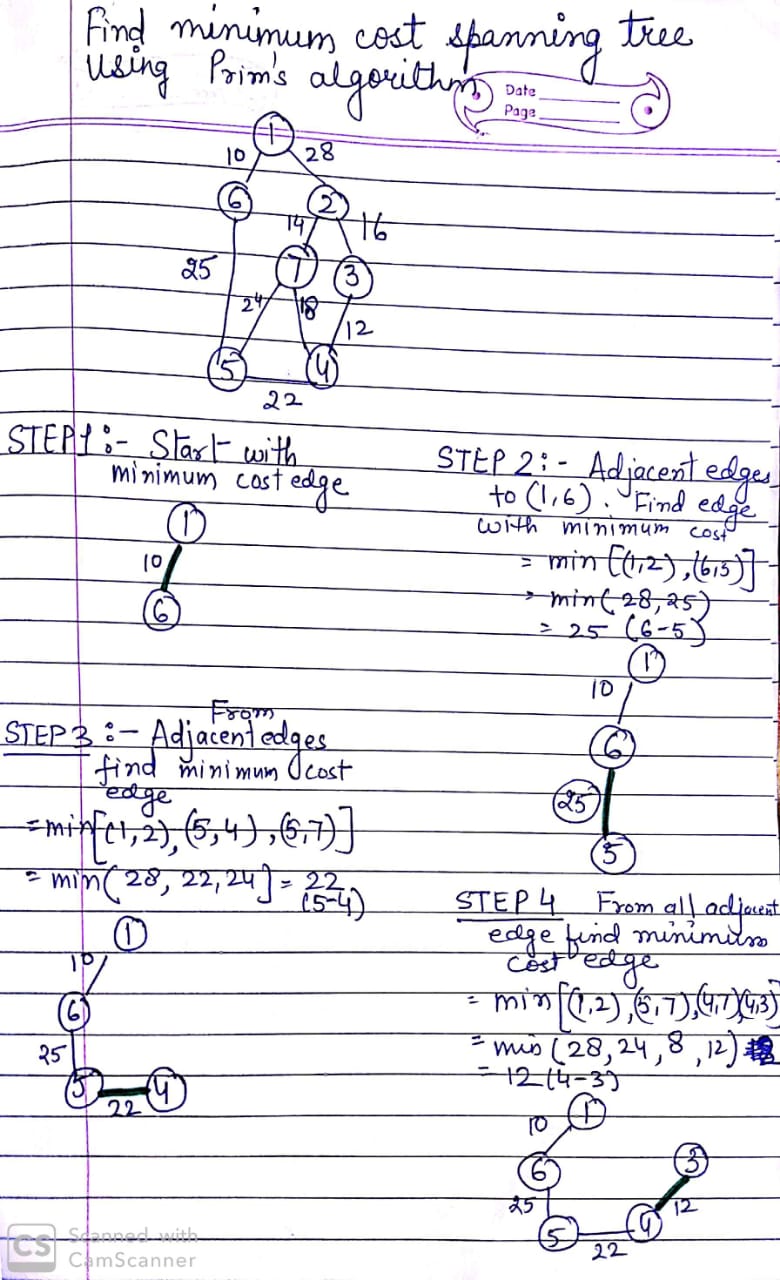 Find minimum cost spanning tree
Using Prim's algorithm
Date
Page
1
10 28
6 2
14 16
25 7 3
24 18
12
5 4
22
STEP 1 :- Start with
minimum cost edge
1
10
6
STEP 2 : - Adjacent edges
to (1,6). Find edge
with minimum cost
= min [(1,2), (6,5)]
= min (28, 25)
= 25 (6-5)
1
10
6
25
5
STEP 3 :- From Adjacent edges
find minimum cost
edge
= min [(1,2), (5,4), (5,7)]
= min (28, 22, 24] = 22
(5-4)
1
10
6
25
5 4
22
STEP 4 From all adjacent
edge find minimum
cost edge
= min [(1,2), (5,7), (4,7)(4,3)
= min (28, 24, 8, 12)
= 12 (4-3)
1
10
6 3
25 12
5 4
22
CS Scanned with
CamScanner